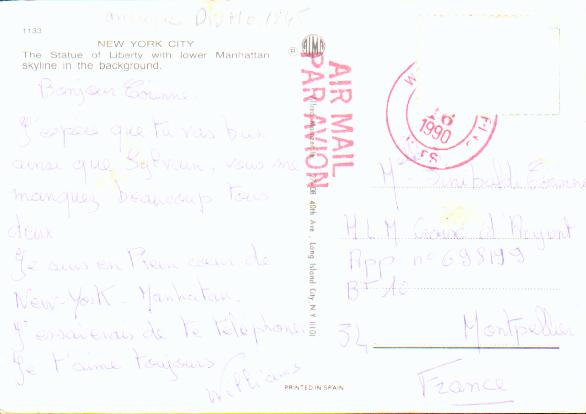 1133
NEW YORK CITY
The Statue of Liberty with lower Manhattan
skyline in the background.
Bonjour
J'espère que tu vas bien
ainsi que Sylvain, vous me
manquez beaucoup tous
deux
Je suis en Plein cœur de
New-York - Manhatan.
J'essaierais de te téléphoner
Je t'aime toujours
Williams
AIR MAIL
PAR AVION
40th Ave., Long Island City N.Y. 11101
PRINTED IN SPAIN
1990
H L M d'Argent
App n° 698199
Bt 10
34 Montpellier
France